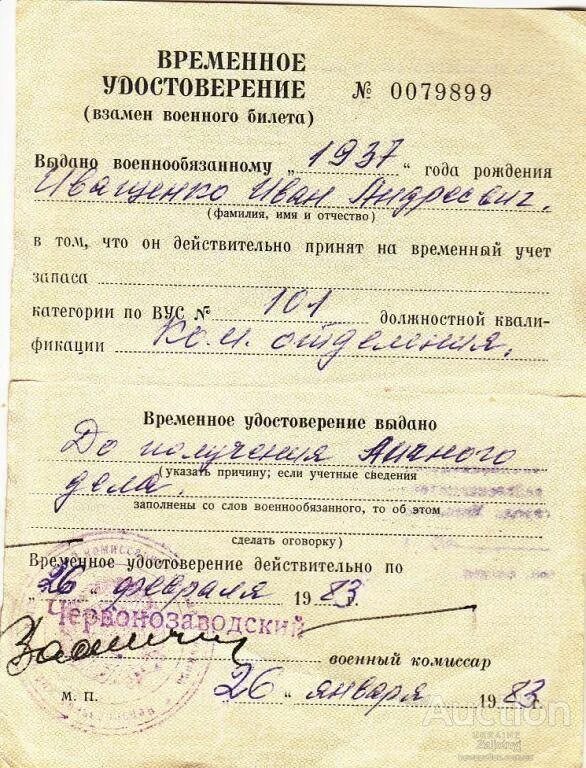 ВРЕМЕННОЕ
УДОСТОВЕРЕНИЕ № 0079899
(взамен военного билета)
Выдано военнообязанному „1937“ года рождения
Иващенко Иван Андреевич.
(фамилия, имя и отчество)
в том, что он действительно принят на временный учет
запаса
категории по ВУС № 101 должностной квали-
фикации Ком. отделения.
Временное удостоверение выдано
До получения личного
(указать причину; если учетные сведения
дела.
заполнены со слов военнообязанного, то об этом
сделать оговорку)
Временное удостоверение действительно по
„26“ февраля 1983г.
Червонозаводский
военный комиссар
М. П. „26“ января 1983г.
Auction
UKRAINE